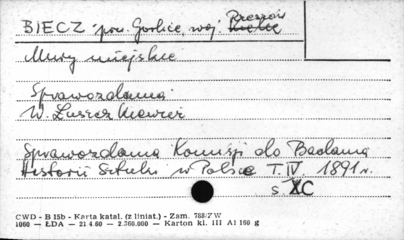 BIECZ pow. Gorlice, woj. Rzeszów
Mury miejskie
Sprawozdania
W. Łuszczkiewicz
Sprawozdania Komisji do Badania
Historii Sztuki w Polsce T. IV 1891 r.
s. XC
CWD - B 15b - Karta katal. (z liniat.) - Zam. 788/7 W
1060 — ŁDA — 21 4.60 — 2.360.000 — Karton kl. III A1 160 g